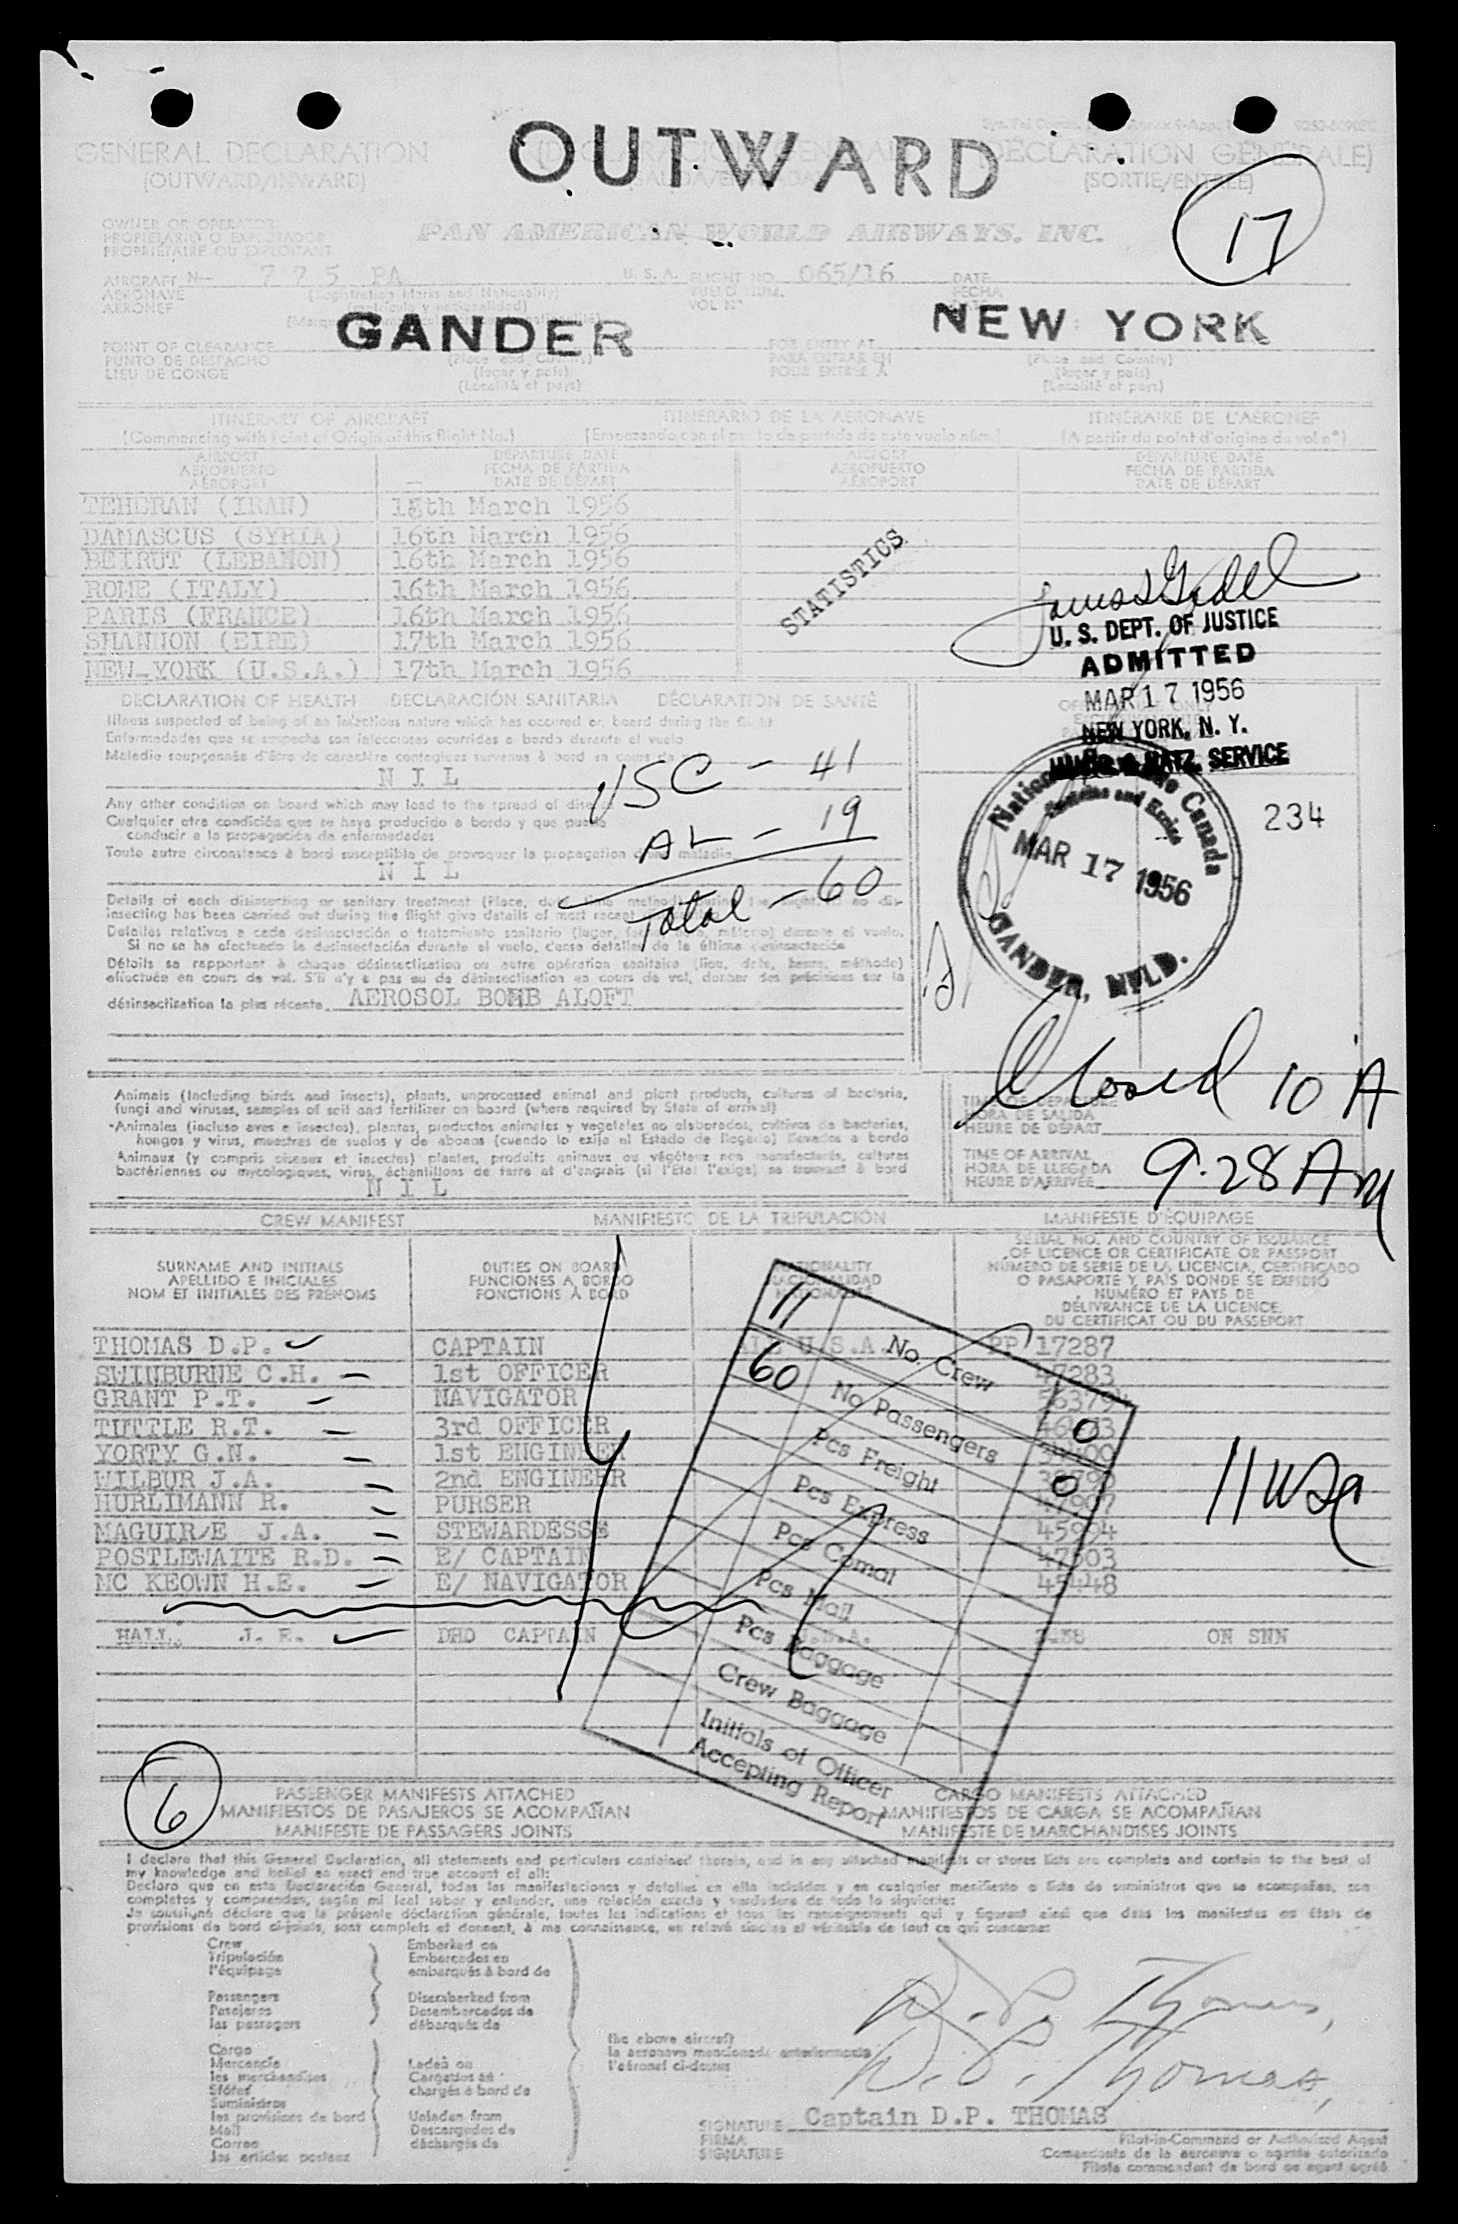 OUTWARD
GENERAL DECLARATION
(OUTWARD/INWARD)
(DECLARATION GENERALE)
(SORTIE/ENTREE)
17
OWNER OR OPERATOR
PROPIETARIO O EXPLOTADOR
PROPRIETAIRE OU EXPLOITANT
PAN AMERICAN WORLD AIRWAYS, INC.
AIRCRAFT N- 775 PA U. S. A. FLIGHT NO. 065/16 DATE
AERONAVE (Registration Marks and Nationality) FECHA
AERONEF VOL N°
GANDER NEW YORK
POINT OF CLEARANCE FOR ENTRY AT
PUNTO DE DESPACHO (Place and Country) PARA ENTRAR EN (Place and Country)
LIEU DE CONGE (lugar y pais) POUR ENTRÉE A (lugar y pais)
(Localité et pays) (Localité et pays)
ITINERARY OF AIRCRAFT ITINERARIO DE LA AERONAVE ITINERAIRE DE L'AERONEF
(Commencing with Point of Origin of this flight No.) (Empezando con el punto de partida de este vuelo núm.) (A partir du point d'origine du vol n°)
AIRPORT DEPARTURE DATE AIRPORT DEPARTURE DATE
AEROPUERTO FECHA DE PARTIDA AEROPUERTO FECHA DE PARTIDA
AÉROPORT DATE DE DÉPART AÉROPORT DATE DE DÉPART
TEHERAN (IRAN) 15th March 1956
DAMASCUS (SYRIA) 16th March 1956
BEIRUT (LEBANON) 16th March 1956
ROME (ITALY) 16th March 1956
PARIS (FRANCE) 16th March 1956
SHANNON (EIRE) 17th March 1956
NEW-YORK (U.S.A.) 17th March 1956
STATISTICS
U. S. DEPT. OF JUSTICE
ADMITTED
MAR 17 1956
NEW YORK, N. Y.
IMMIG. & NATZ. SERVICE
234
DECLARATION OF HEALTH DECLARACIÓN SANITARIA DÉCLARATION DE SANTÉ
Illness suspected of being of an infectious nature which has occured on board during the flight
Enfermedades que se sospecha son infecciosas ocurridas a bordo durante el vuelo
Maladie soupçonnés d'être de caractère contagieux survenus à bord en cours de
N I L
USC - 41
AL - 19
Total - 60
Any other condition on board which may lead to the spread of disease
Cualquier otra condición que se haya producido a bordo y que pueda
conducir a la propagación de enfermedades
Toute autre circonstance à bord susceptible de provoquer la propagation d'une maladie
N I L
MAR 17 1956
GANDER, NFLD.
Details of each disinsecting or sanitary treatment (Place, date, time method) during the flight. If no dis-
insecting has been carried out during the flight give details of most recent
Detalles relativos a cada desinsectación o tratamiento sanitario (lugar, fecha, método) durante el vuelo.
Si no se ha efectuado la desinsectación durante el vuelo, dense detalles de la última desinsectación
Détails se rapportant à chaque désinsectisation ou autre opération sanitaire (lieu, date, heure, méthode)
effectuée en cours de vol. S'il n'y a pas eu de désinsectisation en cours de vol, donner des précisions sur la
désinsectisation la plus récente. AEROSOL BOMB ALOFT
Closed 10 A
Animals (Including birds and insects), plants, unprocessed animal and plant products, cultures of bacteria,
fungi and viruses, samples of soil and fertilizer on board (where required by State of arrival)
Animales (incluso aves e insectos), plantas, productos animales y vegetales no elaborados, cultivos de bacterias,
hongos y virus, muestras de suelos y de abonos (cuando lo exija el Estado de llegada) llevados a bordo
Animaux (y compris oiseaux et insectes) plantes, produits animaux ou végétaux non manufacturés, cultures
bactériennes ou mycologiques, virus, échantillons de terre et d'engrais (si l'Etat l'exige) se trouvant à bord
N I L
TIME OF DEPARTURE
HORA DE SALIDA
HEURE DE DÉPART
TIME OF ARRIVAL
HORA DE LLEGADA
HEURE D'ARRIVÉE
9.28 AM
CREW MANIFEST MANIFIESTO DE LA TRIPULACIÓN MANIFESTE D'ÉQUIPAGE
SURNAME AND INITIALS DUTIES ON BOARD NATIONALITY SERIAL NO. AND COUNTRY OF ISSUANCE
APELLIDO E INICIALES FUNCIONES A BORDO NACIONALIDAD OF LICENCE OR CERTIFICATE OR PASSPORT
NOM ET INITIALES DES PRENOMS FONCTIONS À BORD NATIONALITÉ NÚMERO DE SERIE DE LA LICENCIA, CERTIFICADO
O PASAPORTE Y PAIS DONDE SE EXPIDIÓ
NUMÉRO ET PAYS DE
DÉLIVRANCE DE LA LICENCE,
DU CERTIFICAT OU DU PASSEPORT
THOMAS D.P. CAPTAIN ALL U.S.A. PP 17287
SWINBURNE C.H. 1st OFFICER 47283
GRANT P.T. NAVIGATOR
TUTTLE R.T. 3rd OFFICER
YORTY G.N. 1st ENGINEER
WILBUR J.A. 2nd ENGINEER
HURLIMANN R. PURSER 47907
MAGUIRE J.A. STEWARDESS 45994
POSTLEWAITE R.D. E/ CAPTAIN 47603
MC KEOWN H.E. E/ NAVIGATOR 45448
HALL J. E. DHD CAPTAIN U.S.A. ON SNN
11 USA
11 No. Crew
60 No Passengers 0
Pcs Freight 0
Pcs Express
Pcs Comat
Pcs Mail
Pcs Baggage
Crew Baggage
Initials of Officer
Accepting Report
6
PASSENGER MANIFESTS ATTACHED CARGO MANIFESTS ATTACHED
MANIFIESTOS DE PASAJEROS SE ACOMPAÑAN MANIFIESTOS DE CARGA SE ACOMPAÑAN
MANIFESTE DE PASSAGERS JOINTS MANIFESTE DE MARCHANDISES JOINTS
I declare that this General Declaration, all statements and particulars contained therein, and in any attached manifests or stores lists are complete and contain to the best of
my knowledge and belief an exact and true account of all:
Declaro que en esta Declaración General, todas las manifestaciones y detalles en ella incluidos y en cualquier manifiesto o lista de suministros que se acompañan, son
completos y comprenden, según mi leal saber y entender, una relación exacta y verdadera de todo lo siguiente:
Je soussigné déclare que la présente déclaration générale, toutes les indications et tous les renseignements qui y figurent ainsi que dans les manifestes ou états de
provisions de bord ci-joints, sont complets et donnent, à ma connaissance, un relevé sincère et véritable de tout ce qui concerne:
Crew Embarked on
Tripulación Embarcados en
l'équipage embarqués à bord de
Passengers Disembarked from
Pasajeros Desembarcados de
les passagers débarqués de
Cargo
Mercancía Laden on
les marchandises Cargados en
Stores chargés à bord de
Suministros
les provisions de bord Unladen from
Mail Descargados de
Correo déchargés de
les articles postaux
the above aircraft
la aeronave mencionada anteriormente
l'aéronef ci-dessus
D. P. Thomas,
D. P. Thomas,
SIGNATURE Captain D.P. THOMAS
FIRMA
SIGNATURE
Pilot-in-Command or Authorized Agent
Comandante de la aeronave o agente autorizado
Pilote commandant de bord ou agent agréé